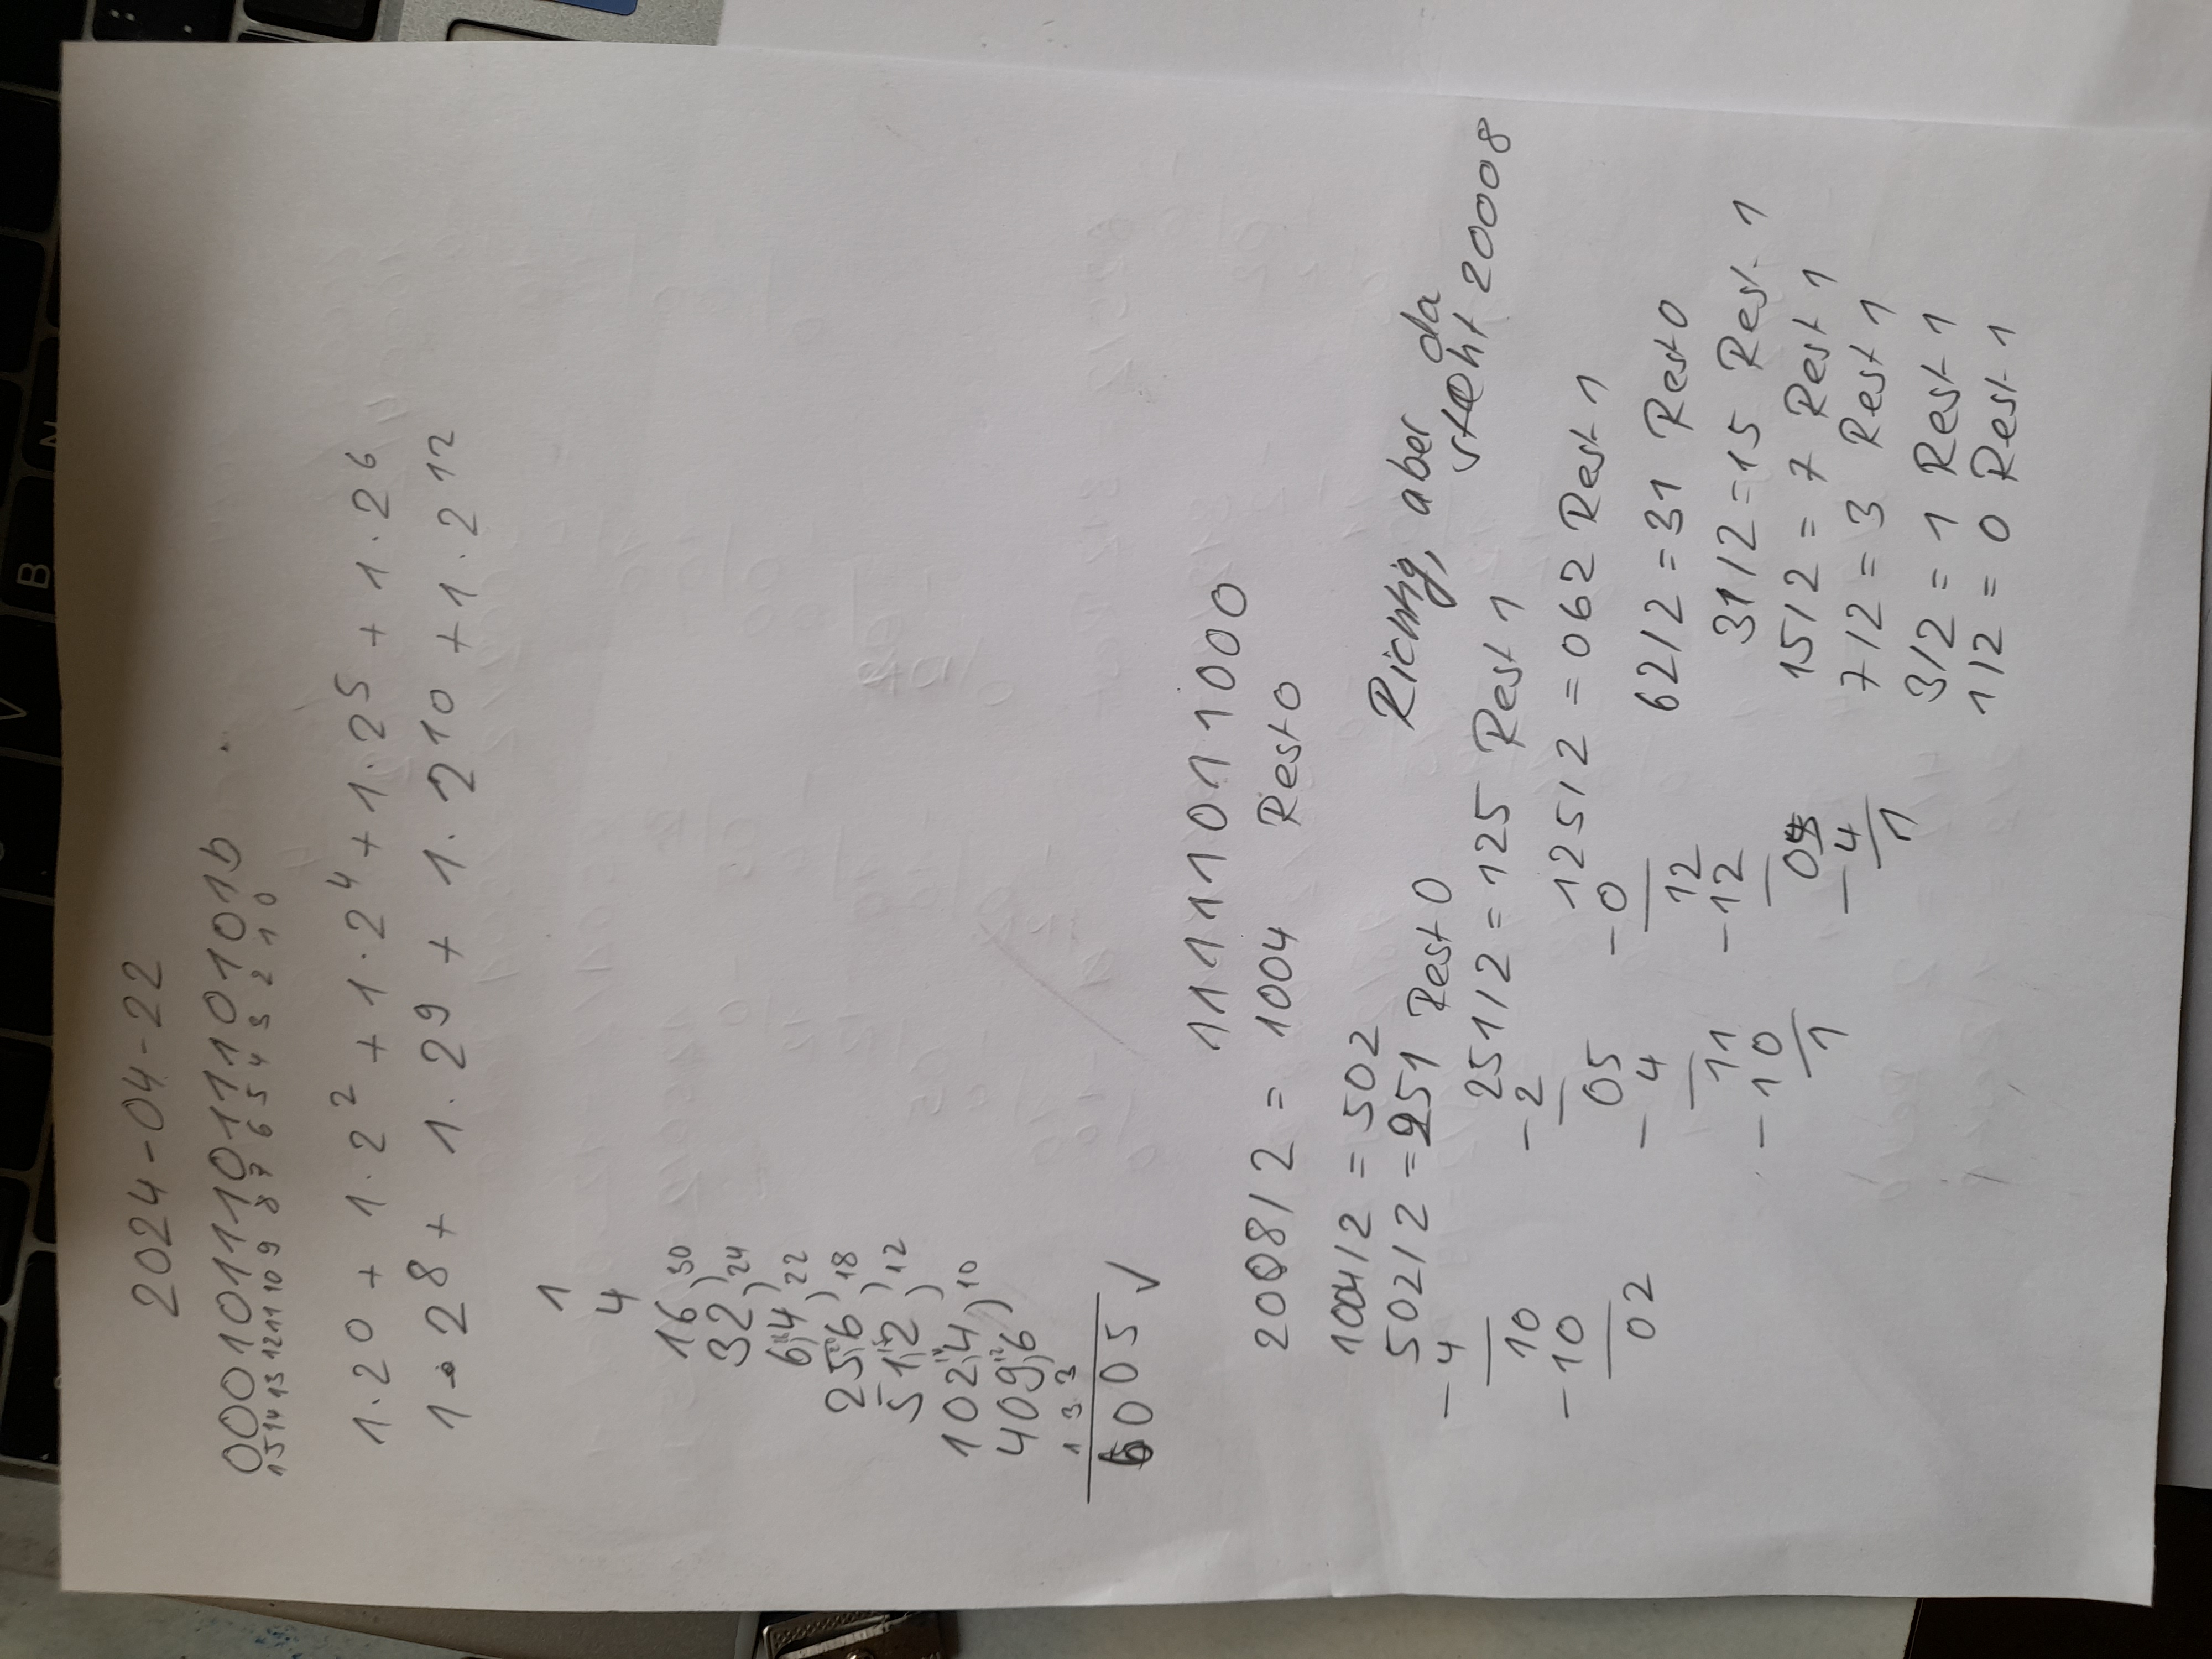 2024-04-22
0001011101110101b
15 14 13 12 11 10 9 8 7 6 5 4 3 2 1 0
1·2^0 + 1·2^2 + 1·2^4 + 1·2^5 + 1·2^6
1·2^8 + 1·2^9 + 1·2^10 + 1·2^12
1
4
16
32 ) 30
64 ) 24
256 ) 22
512 ) 18
1024 ) 12
4096 ) 10
1 3 3
6005 ✓
11111011000
2008/2 = 1004 Rest 0
1004/2 = 502
502/2 = 251 Rest 0
Richtig, aber da
steht 20008
-4
10
-10
02
251/2 = 125 Rest 1
-2
05
-4
11
-10
1
125/2 = 062 Rest 1
-0
12
-12
05
-4
1
62/2 = 31 Rest 0
31/2 = 15 Rest 1
15/2 = 7 Rest 1
7/2 = 3 Rest 1
3/2 = 1 Rest 1
1/2 = 0 Rest 1
B
V
N